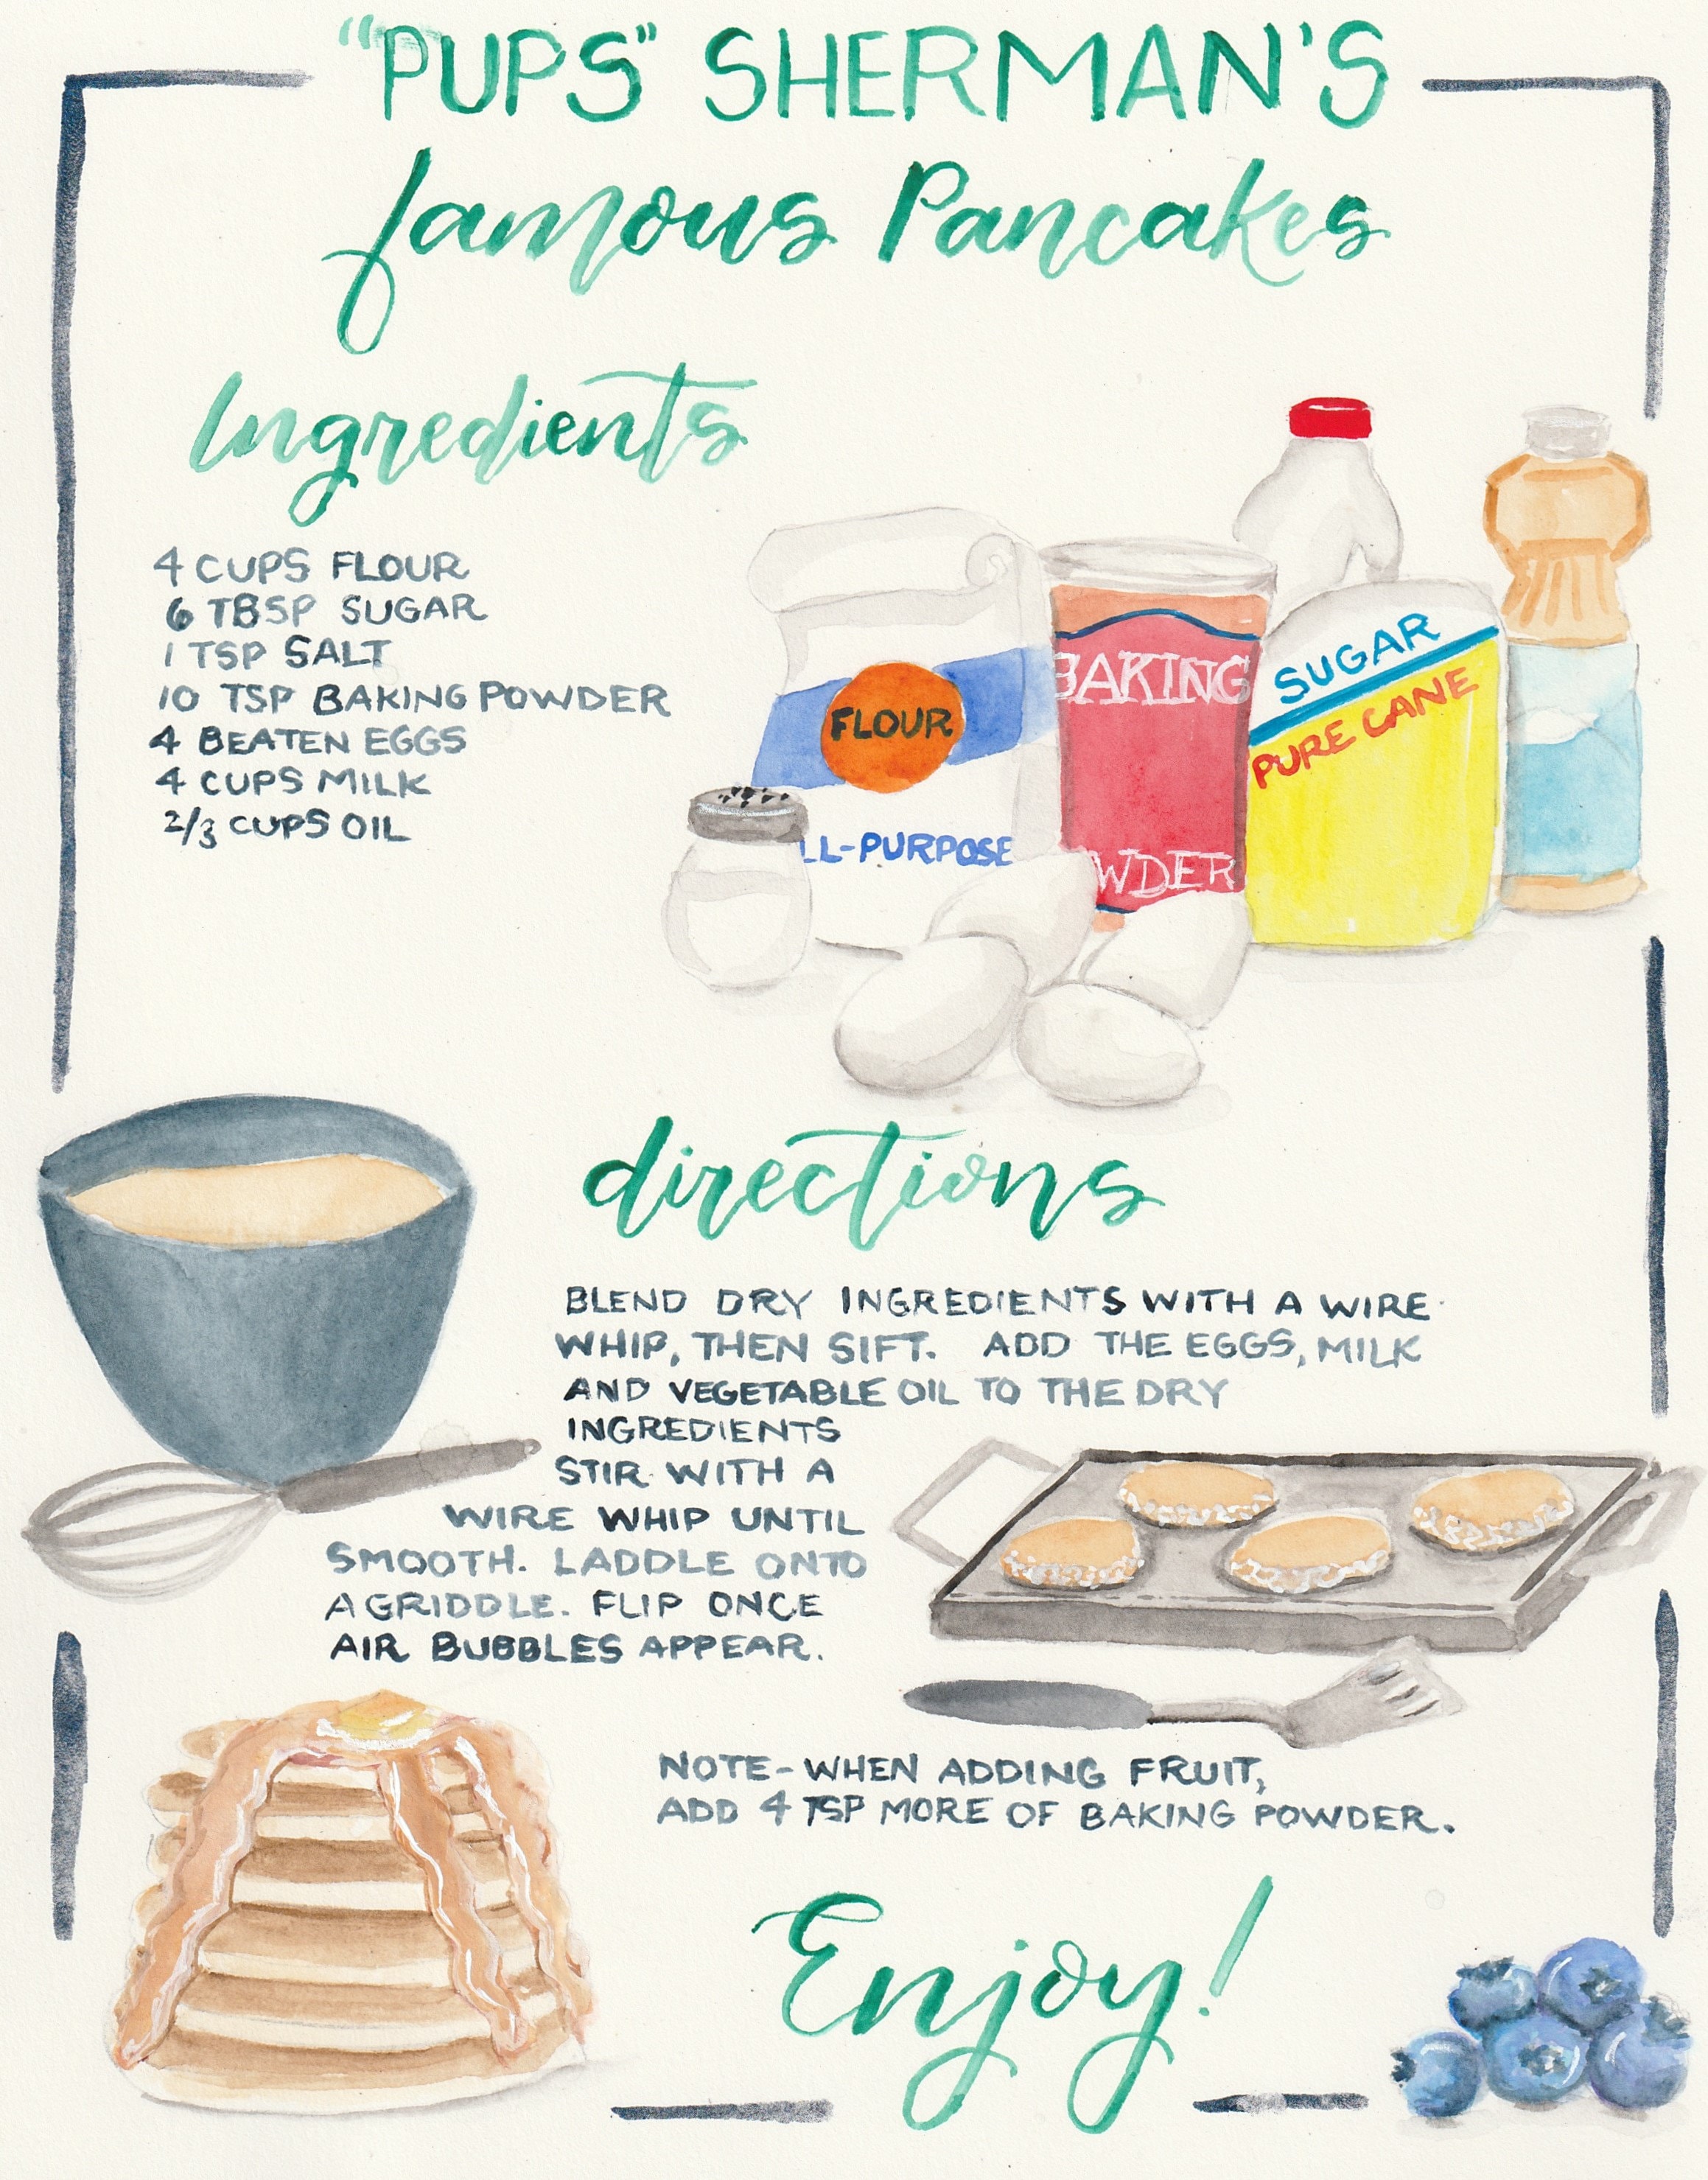 "PUPS" SHERMAN'S
famous Pancakes
Ingredients
4 CUPS FLOUR
6 TBSP SUGAR
1 TSP SALT
10 TSP BAKING POWDER
4 BEATEN EGGS
4 CUPS MILK
2/3 CUPS OIL
FLOUR
LL-PURPOSE
BAKING
WDER
SUGAR
PURE CANE
directions
BLEND DRY INGREDIENTS WITH A WIRE
WHIP, THEN SIFT. ADD THE EGGS, MILK
AND VEGETABLE OIL TO THE DRY
INGREDIENTS
STIR WITH A
WIRE WHIP UNTIL
SMOOTH. LADDLE ONTO
A GRIDDLE. FLIP ONCE
AIR BUBBLES APPEAR.
NOTE - WHEN ADDING FRUIT,
ADD 4 TSP MORE OF BAKING POWDER.
Enjoy!